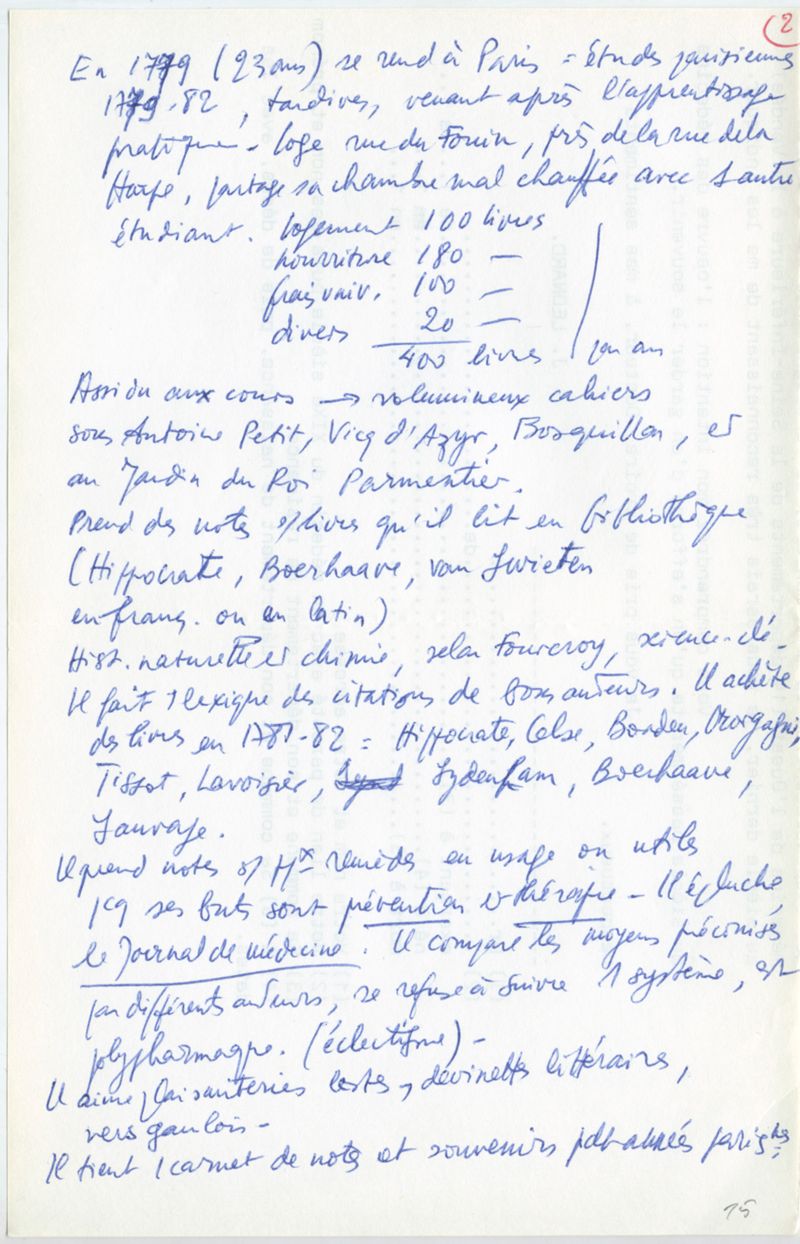 2
En 1779 (23 ans) se rend à Paris = études parisiennes
1779-82, tardives, venant après l'apprentissage
pratique - loge rue du Fouin, près de la rue de la
Harpe, partage sa chambre mal chauffée avec 1 autre
étudiant. logement 100 livres
nourriture 180 —
frais univ. 100 —
divers 20 —
400 livres par an
Assidu aux cours → volumineux cahiers
sous Antoine Petit, Vicq d'Azyr, Bosquillon, et
au Jardin du Roi Parmentier.
Prend des notes s/ livres qu'il lit en bibliothèque
(Hippocrate, Boerhaave, van Swieten
en franç. ou en latin)
Hist. naturelle et chimie, selon Fourcroy, science-clé.
Il fait 1 lexique des citations de bons auteurs. Il achète
des livres en 1781-82 = Hippocrate, Celse, Bordeu, Morgagni,
Tissot, Lavoisier, Sydenham, Boerhaave,
Sauvage.
Il prend notes s/ remèdes en usage ou utiles
pcq ses buts sont prévention et thérapie - Il épluche
le Journal de médecine. Il compare les moyens préconisés
par différents auteurs, se refuse à suivre 1 système, est
polypharmaque. (éclectisme) -
Il aime plaisanteries lestes, devinettes littéraires,
vers gaulois -
Il tient 1 carnet de notes et souvenirs pdt années paris.
15